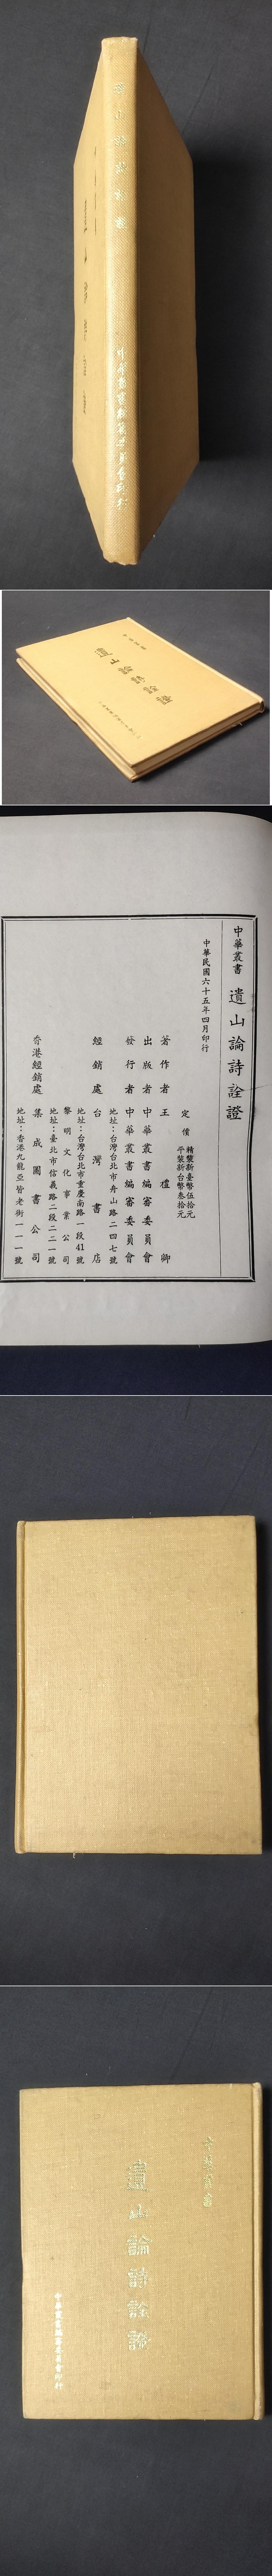 遺山論詩詮證
中華叢書編審委員會印行
中華叢書
遺山論詩詮證
中華叢書 遺山論詩詮證
中華民國六十五年四月印行
定價 精裝新臺幣伍拾元
平裝新台幣叁拾元
著作者 王禮卿
出版者 中華叢書編審委員會
發行者 中華叢書編審委員會
地址：台灣台北市舟山路二四七號
經銷處 台灣書店
地址：台灣台北市重慶南路一段41號
黎明文化事業公司
地址：臺北市信義路二段二二一號
香港經銷處 集成圖書公司
地址：香港九龍亞皆老街一一一號
中華叢書
遺山論詩詮證
中華叢書編審委員會印行